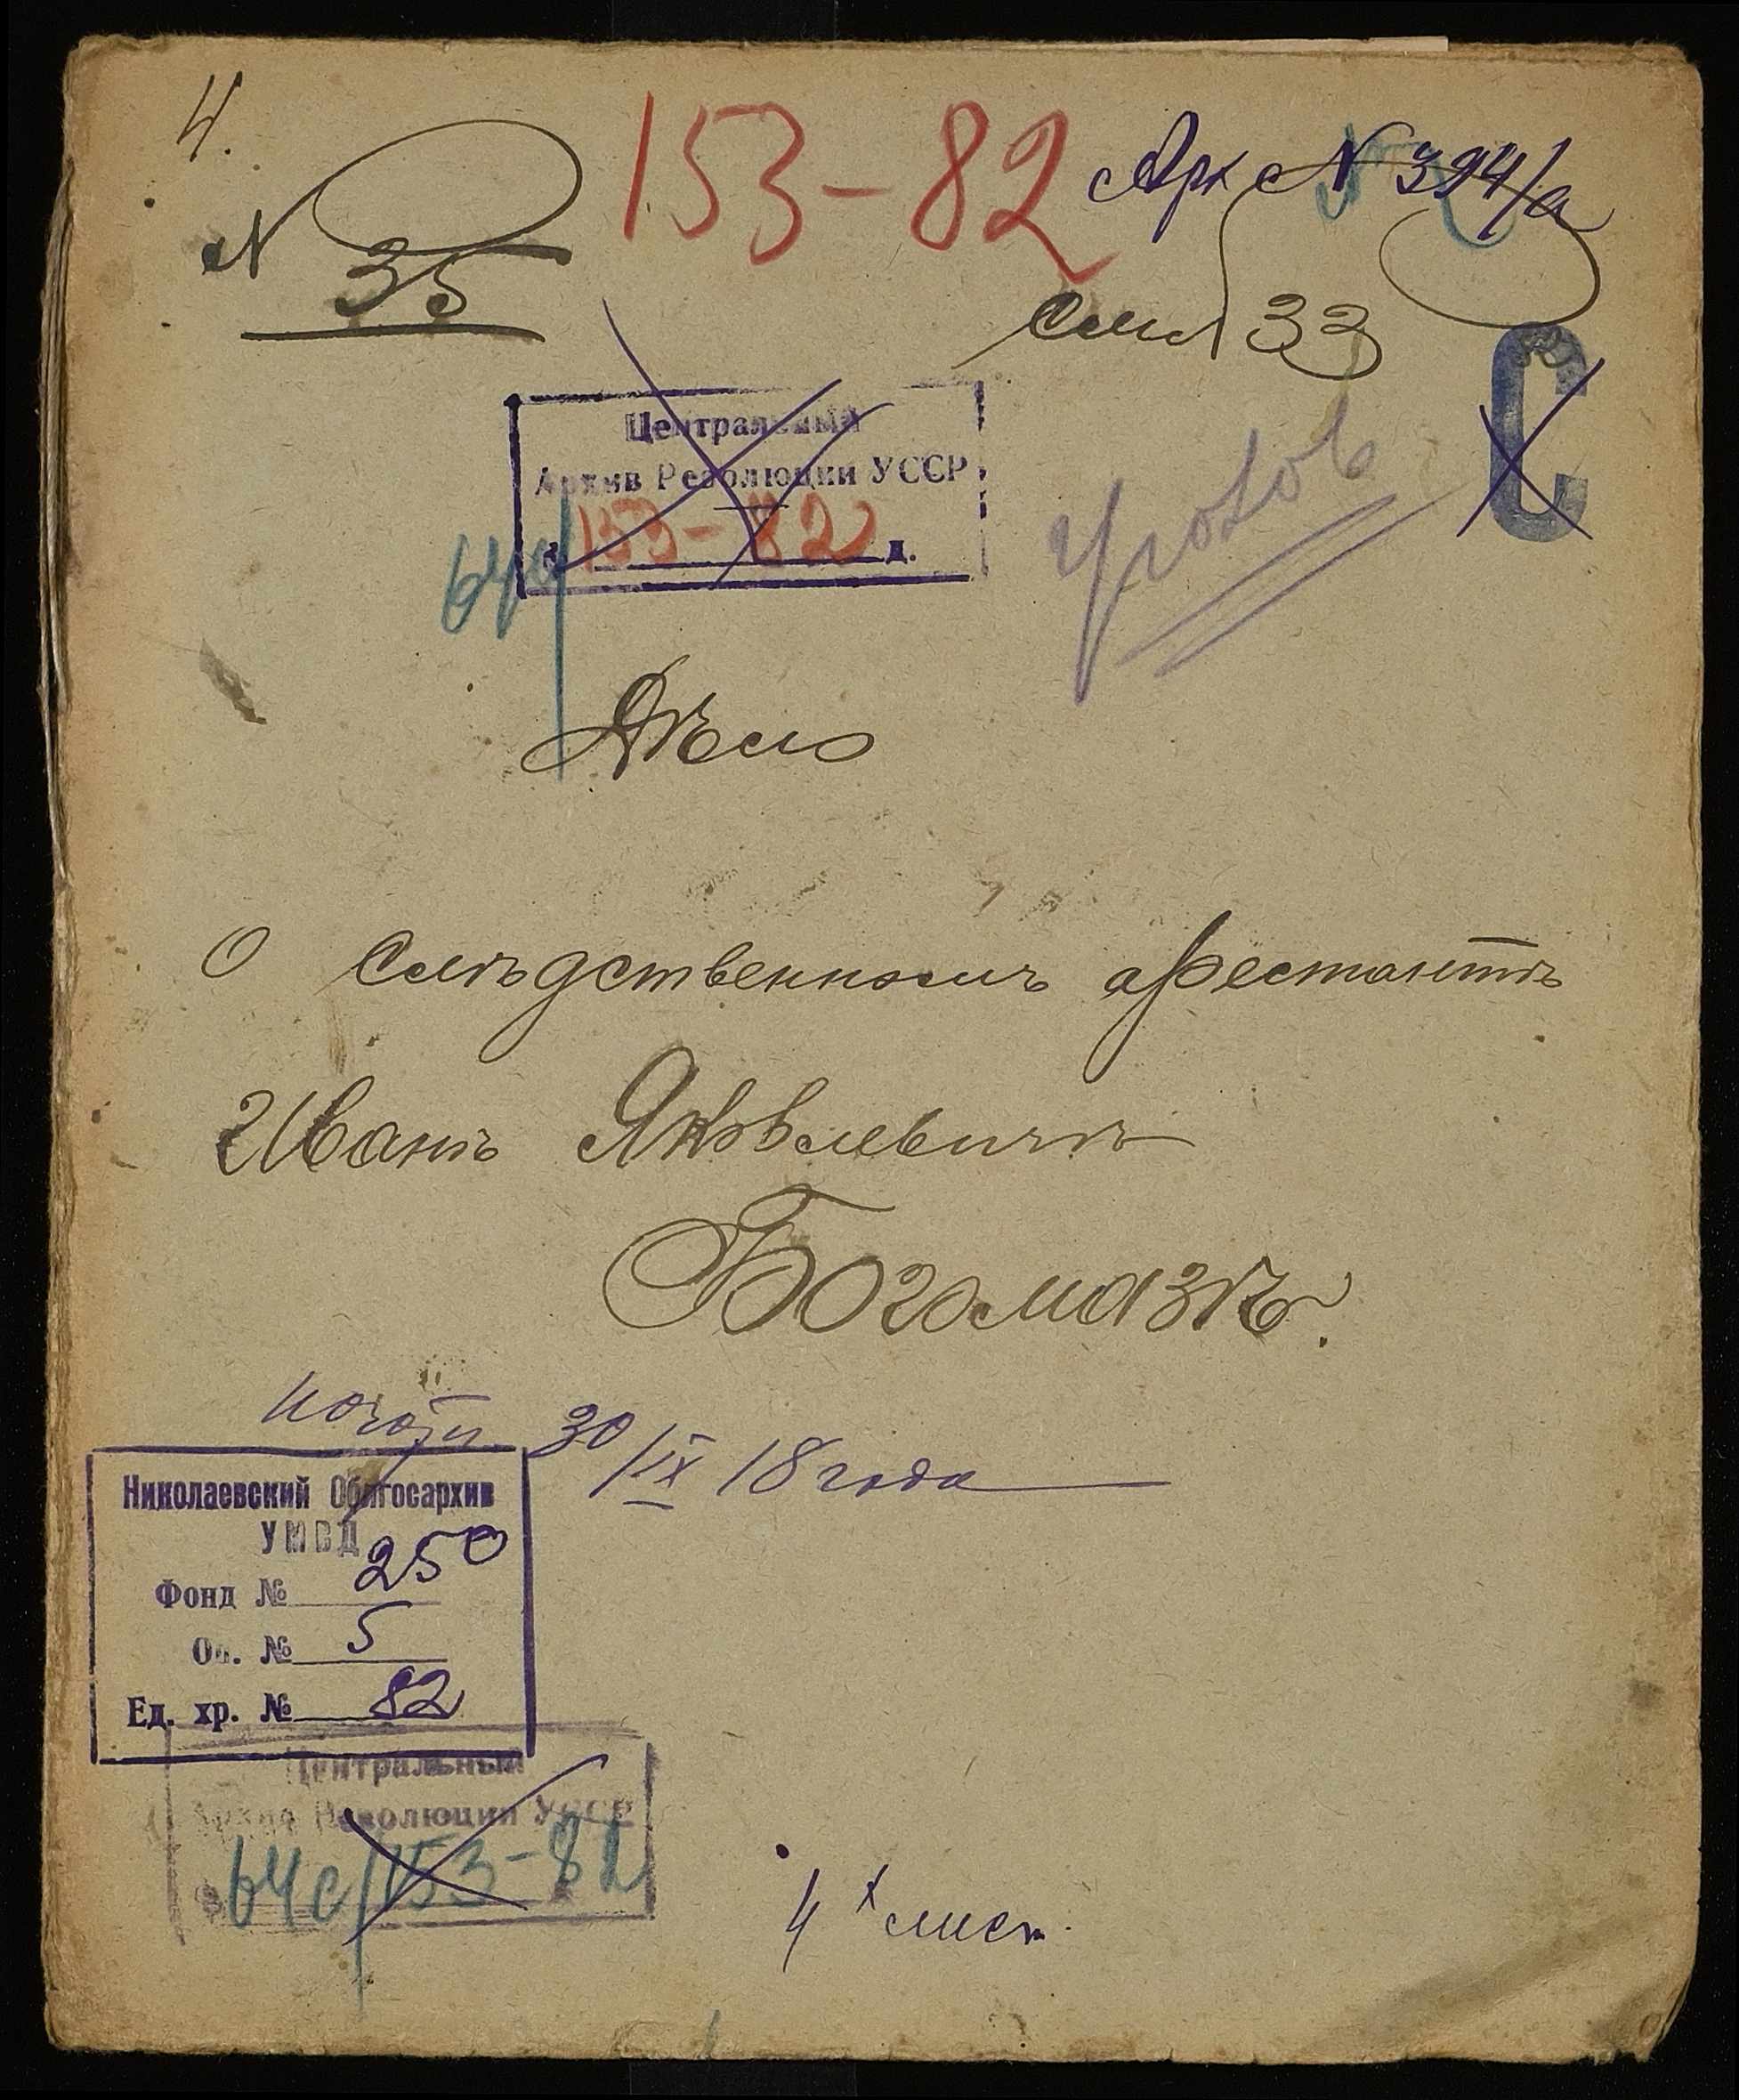 4.
153-82
Арх № 394/а
№ 35
33
Центральный
Архив Революции УССР
153-82 д.
С
64с/
Дѣло
О слѣдственномъ арестантѣ
Иванѣ Яковлевичѣ
Богомазѣ.
30/IX 18 года
Николаевский Облгосархив
УМВД
Фонд № 250
Оп. № 5
Ед. хр. № 82
Центральный
Архив Революции УССР
64с/153-82
4х лист.